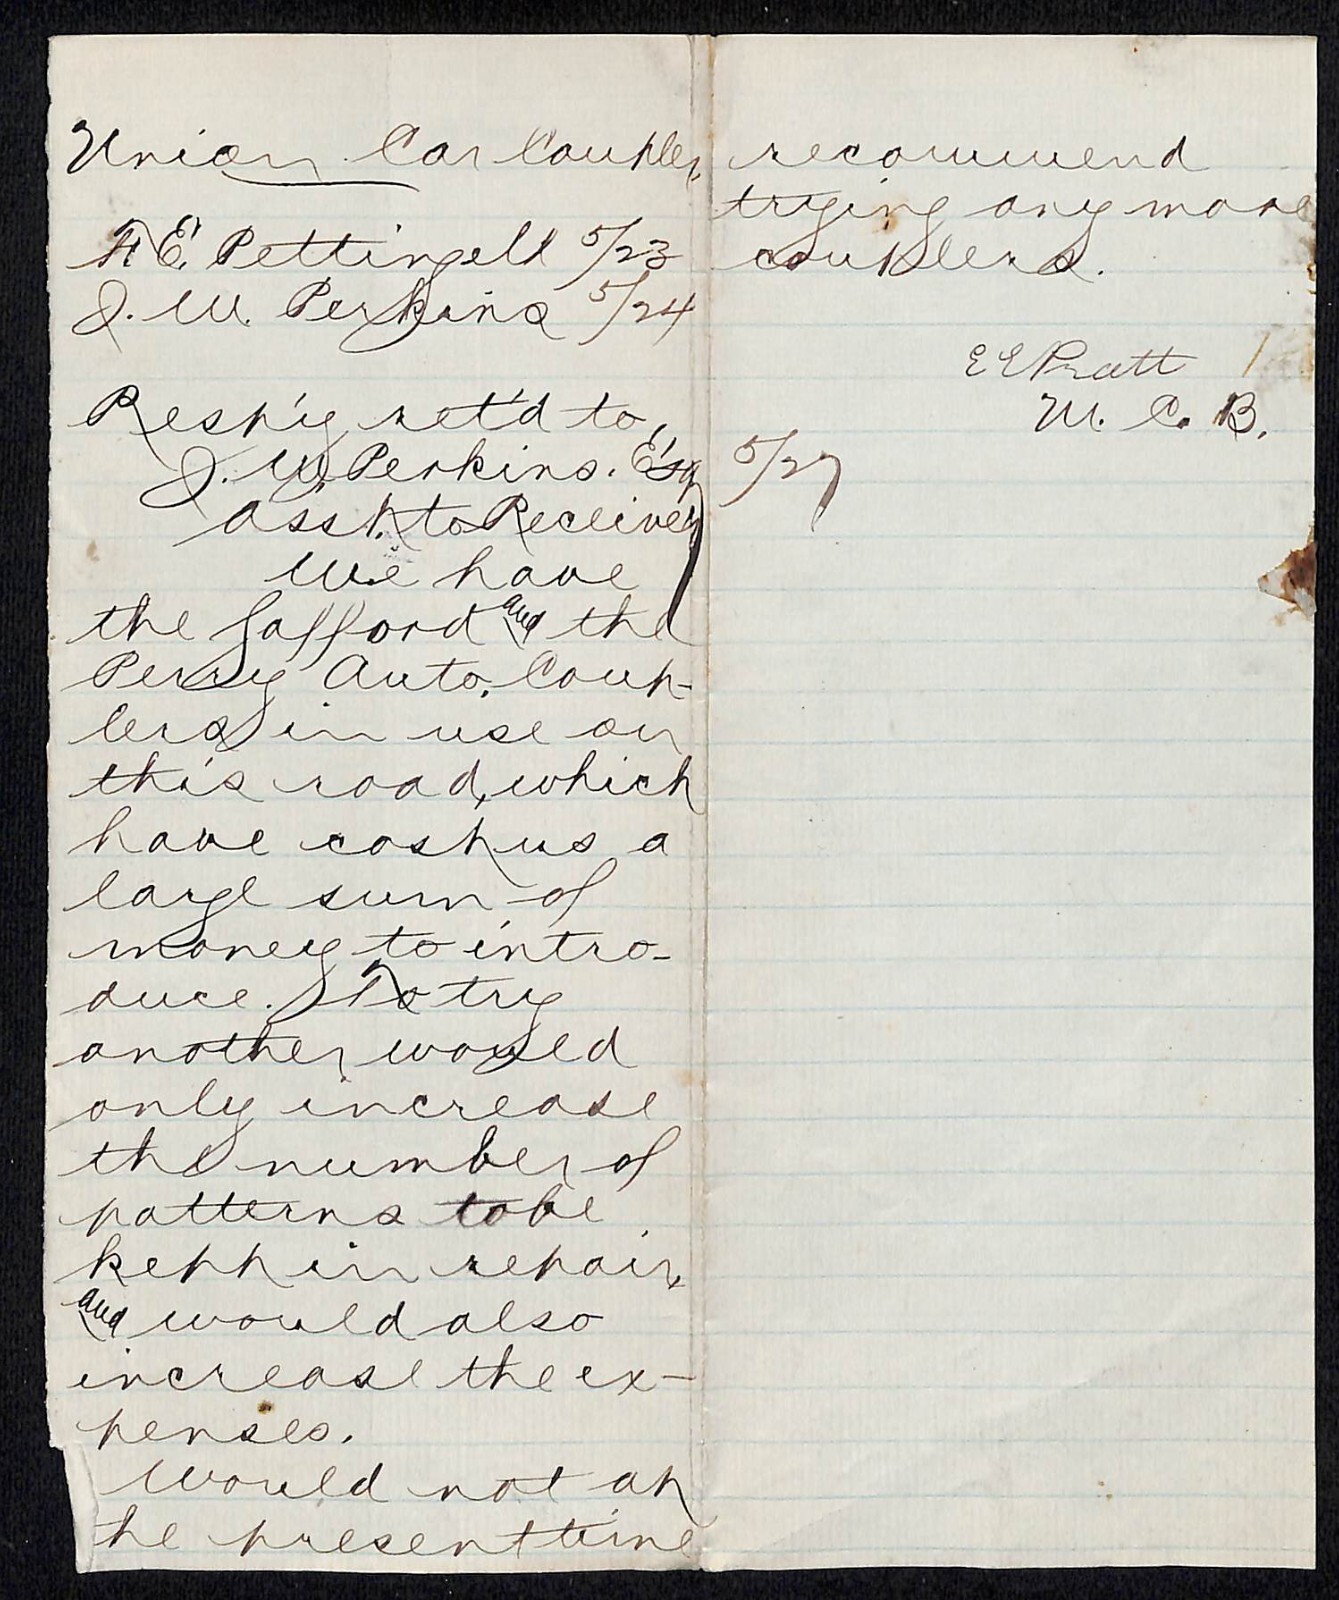 Union Car Coupler,
F. E. Pettingell 5/23
J. W. Perkins 5/24
Resp'y ret'd to,
J. W. Perkins. Esq
Ass't. to Receiver
We have
the Safford and the
Perry Auto. Coup-
lers in use on
this road, which
have cost us a
large sum of
money to intro-
duce. To try
another would
only increase
the number of
patterns to be
kept in repair,
and would also
increase the ex-
penses.
Would not at
the present time
recommend
trying any more
couplers.
E E Pratt
M. C. B.
5/27